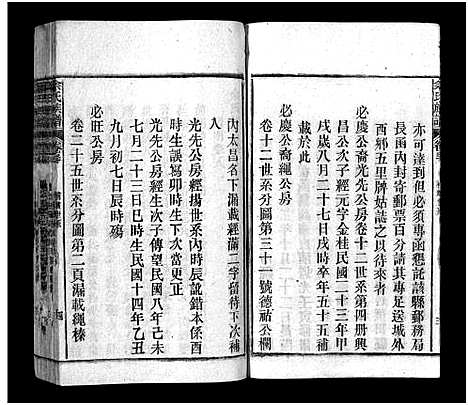 亦可達到但必須專函懇託該縣郵務局
長函內封寄郵票百分請其專足送城外
西鄉五里牌姑誌之以待來者
必慶公裔光先公房卷十二世系第四冊與
昌公次子經元字金桂民國二十三年甲
戌歲八月二十七日戌時卒年五十五歲
載於此
必慶公裔繩公房
卷十二世系分圖第三十一號德祜公欄
內太昌名下漏載經蘭二字留待下次補
入
光先公房經揚世系內時辰誤錯本係酉
時生誤寫卯時生下次當更正
光先公房經生次子傳望民國八年己未
七月二十三日巳時生民國十四年乙丑
九月初七日辰時殤
必旺公房
卷三十五世系分圖第二頁漏載繩榛